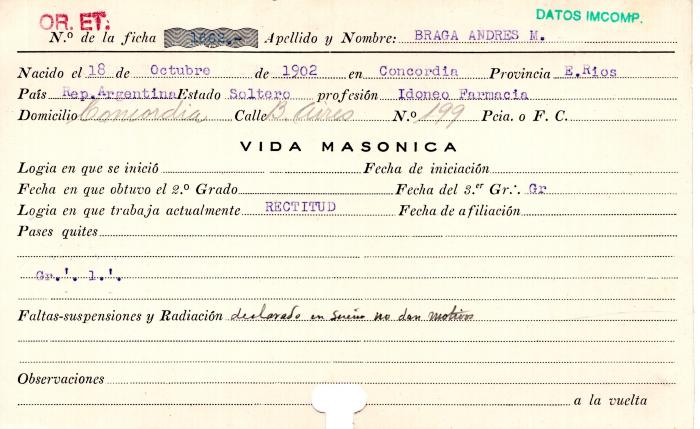 OR. ET:
DATOS IMCOMP.
N.º de la ficha Apellido y Nombre: BRAGA ANDRES M.
Nacido el 18 de Octubre de 1902 en Concordia Provincia E.Rios
País Rep.Argentina Estado Soltero profesión Idoneo Farmacia
Domicilio Concordia Calle B. Aires N.º 199 Pcia. o F. C.
VIDA MASONICA
Logia en que se inició Fecha de iniciación
Fecha en que obtuvo el 2.º Grado Fecha del 3.er Gr.·. Gr
Logia en que trabaja actualmente RECTITUD Fecha de afiliación
Pases quites
Gr.'. 1.'.
Faltas-suspensiones y Radiación declarado en sueño no dan motivos
Observaciones
a la vuelta